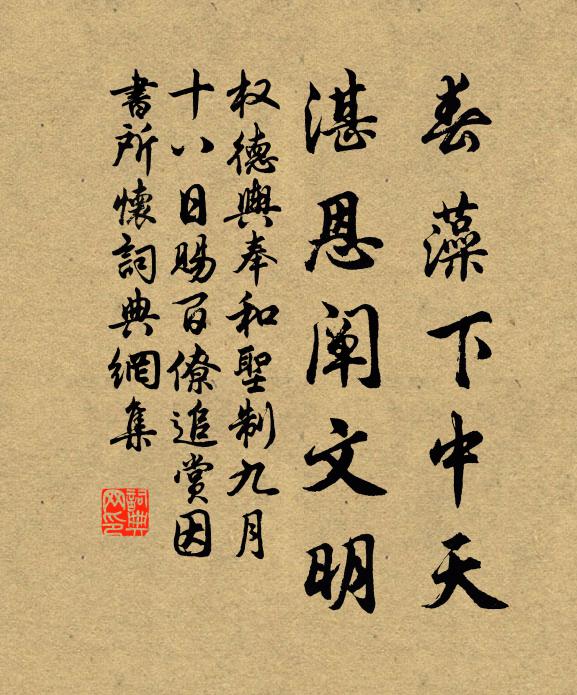 春藻下中天
湛恩阐文明
权德舆奉和聖制九月
十八日賜百僚追賞因
書所懷詞典網集
詞典
网印